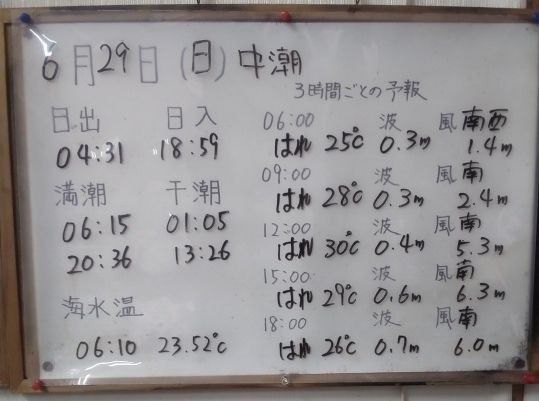 6月29日(日)中潮
日出 日入
04:31 18:59
満潮 干潮
06:15 01:05
20:36 13:26
海水温
06:10 23.52℃
3時間ごとの予報
06:00 波 風 南西
はれ 25℃ 0.3m 1.4m
09:00 波 風 南
はれ 28℃ 0.3m 2.4m
12:00 波 風 南
はれ 30℃ 0.4m 5.3m
15:00 波 風 南
はれ 29℃ 0.6m 6.3m
18:00 波 風 南
はれ 26℃ 0.7m 6.0m